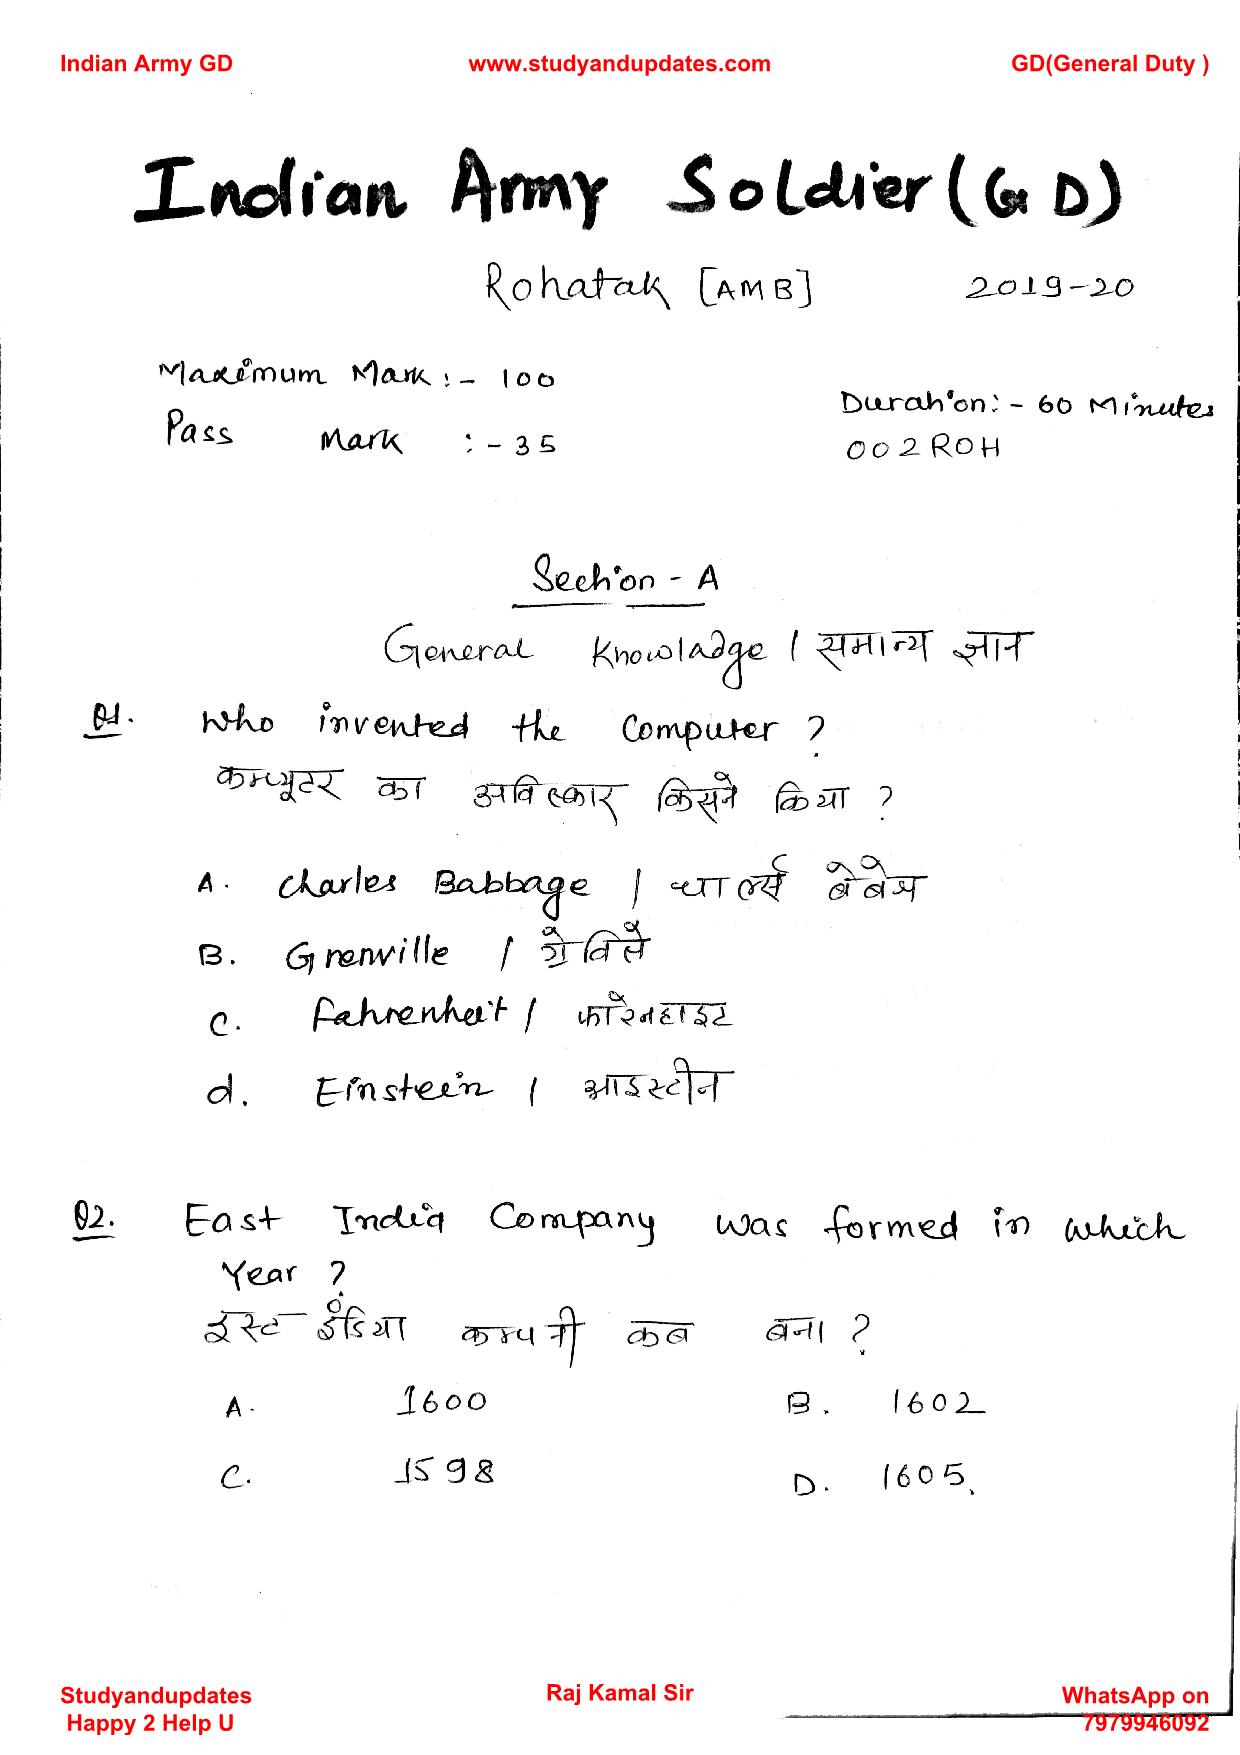 Indian Army GD www.studyandupdates.com GD(General Duty )
Indian Army Soldier (GD)
Rohatak [AMB] 2019-20
Maximum Mark :- 100
Duration:- 60 Minutes
Pass Mark :- 35
002ROH
Section - A
General Knowladge / समान्य ज्ञान
Q1. Who invented the Computer ?
कम्प्यूटर का अविस्कार किसने किया ?
A. Charles Babbage / चार्ल्स बेबेज
B. Grenville / ग्रेविले
C. Fahrenheit / फारेनहाइट
d. Einstein / आइस्टीन
Q2. East India Company was formed in which
Year ?
इस्ट इंडिया कम्पनी कब बना ?
A. 1600 B. 1602
C. 1598 D. 1605
Studyandupdates Raj Kamal Sir WhatsApp on
Happy 2 Help U 7979946092